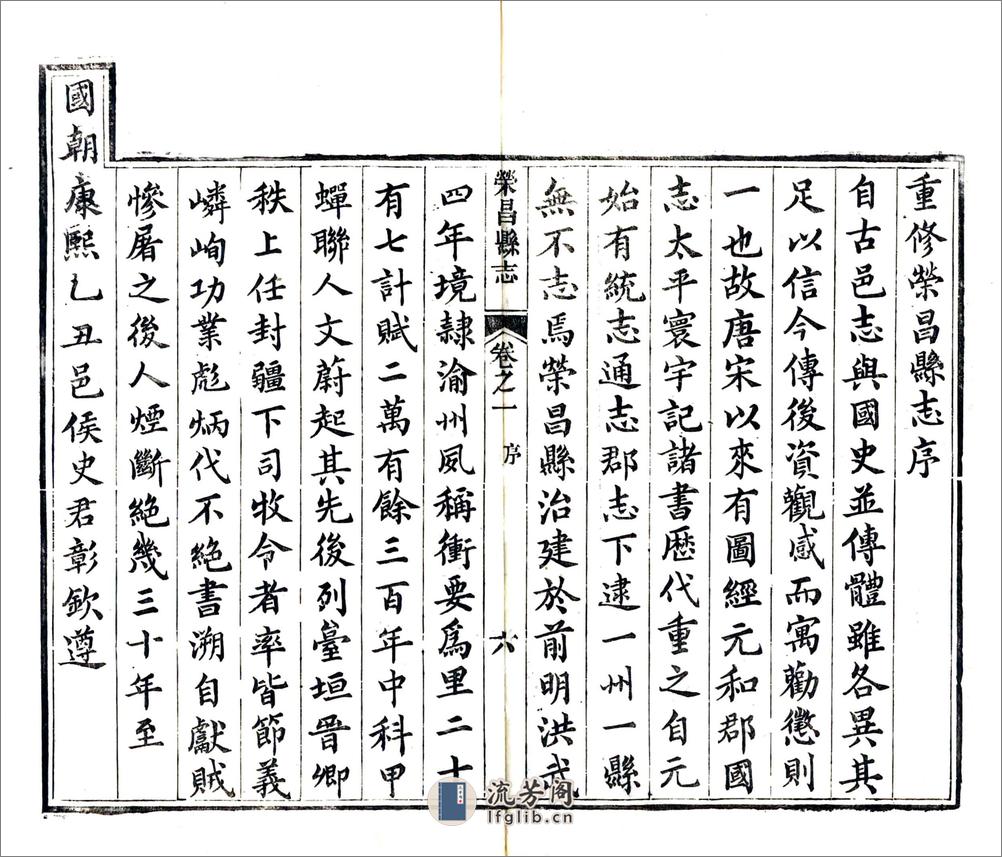 重修榮昌縣志序
自古邑志與國史並傳體雖各異其
足以信今傳後資觀感而寓勸懲則
一也故唐宋以來有圖經元和郡國
志太平寰宇記諸書歷代重之自元
始有統志通志郡志下逮一州一縣
無不志焉榮昌縣治建於前明洪武
榮昌縣志 卷之一 序 六
四年境隸渝州夙稱衝要爲里二十
有七計賦二萬有餘三百年中科甲
蟬聯人文蔚起其先後列臺垣晉卿
秩上任封疆下司牧令者率皆節義
嶙峋功業彪炳代不絕書溯自獻賊
慘屠之後人煙斷絕幾三十年至
國朝康熙乙丑邑侯史君彰欽遵
流芳阁
lfglib.cn